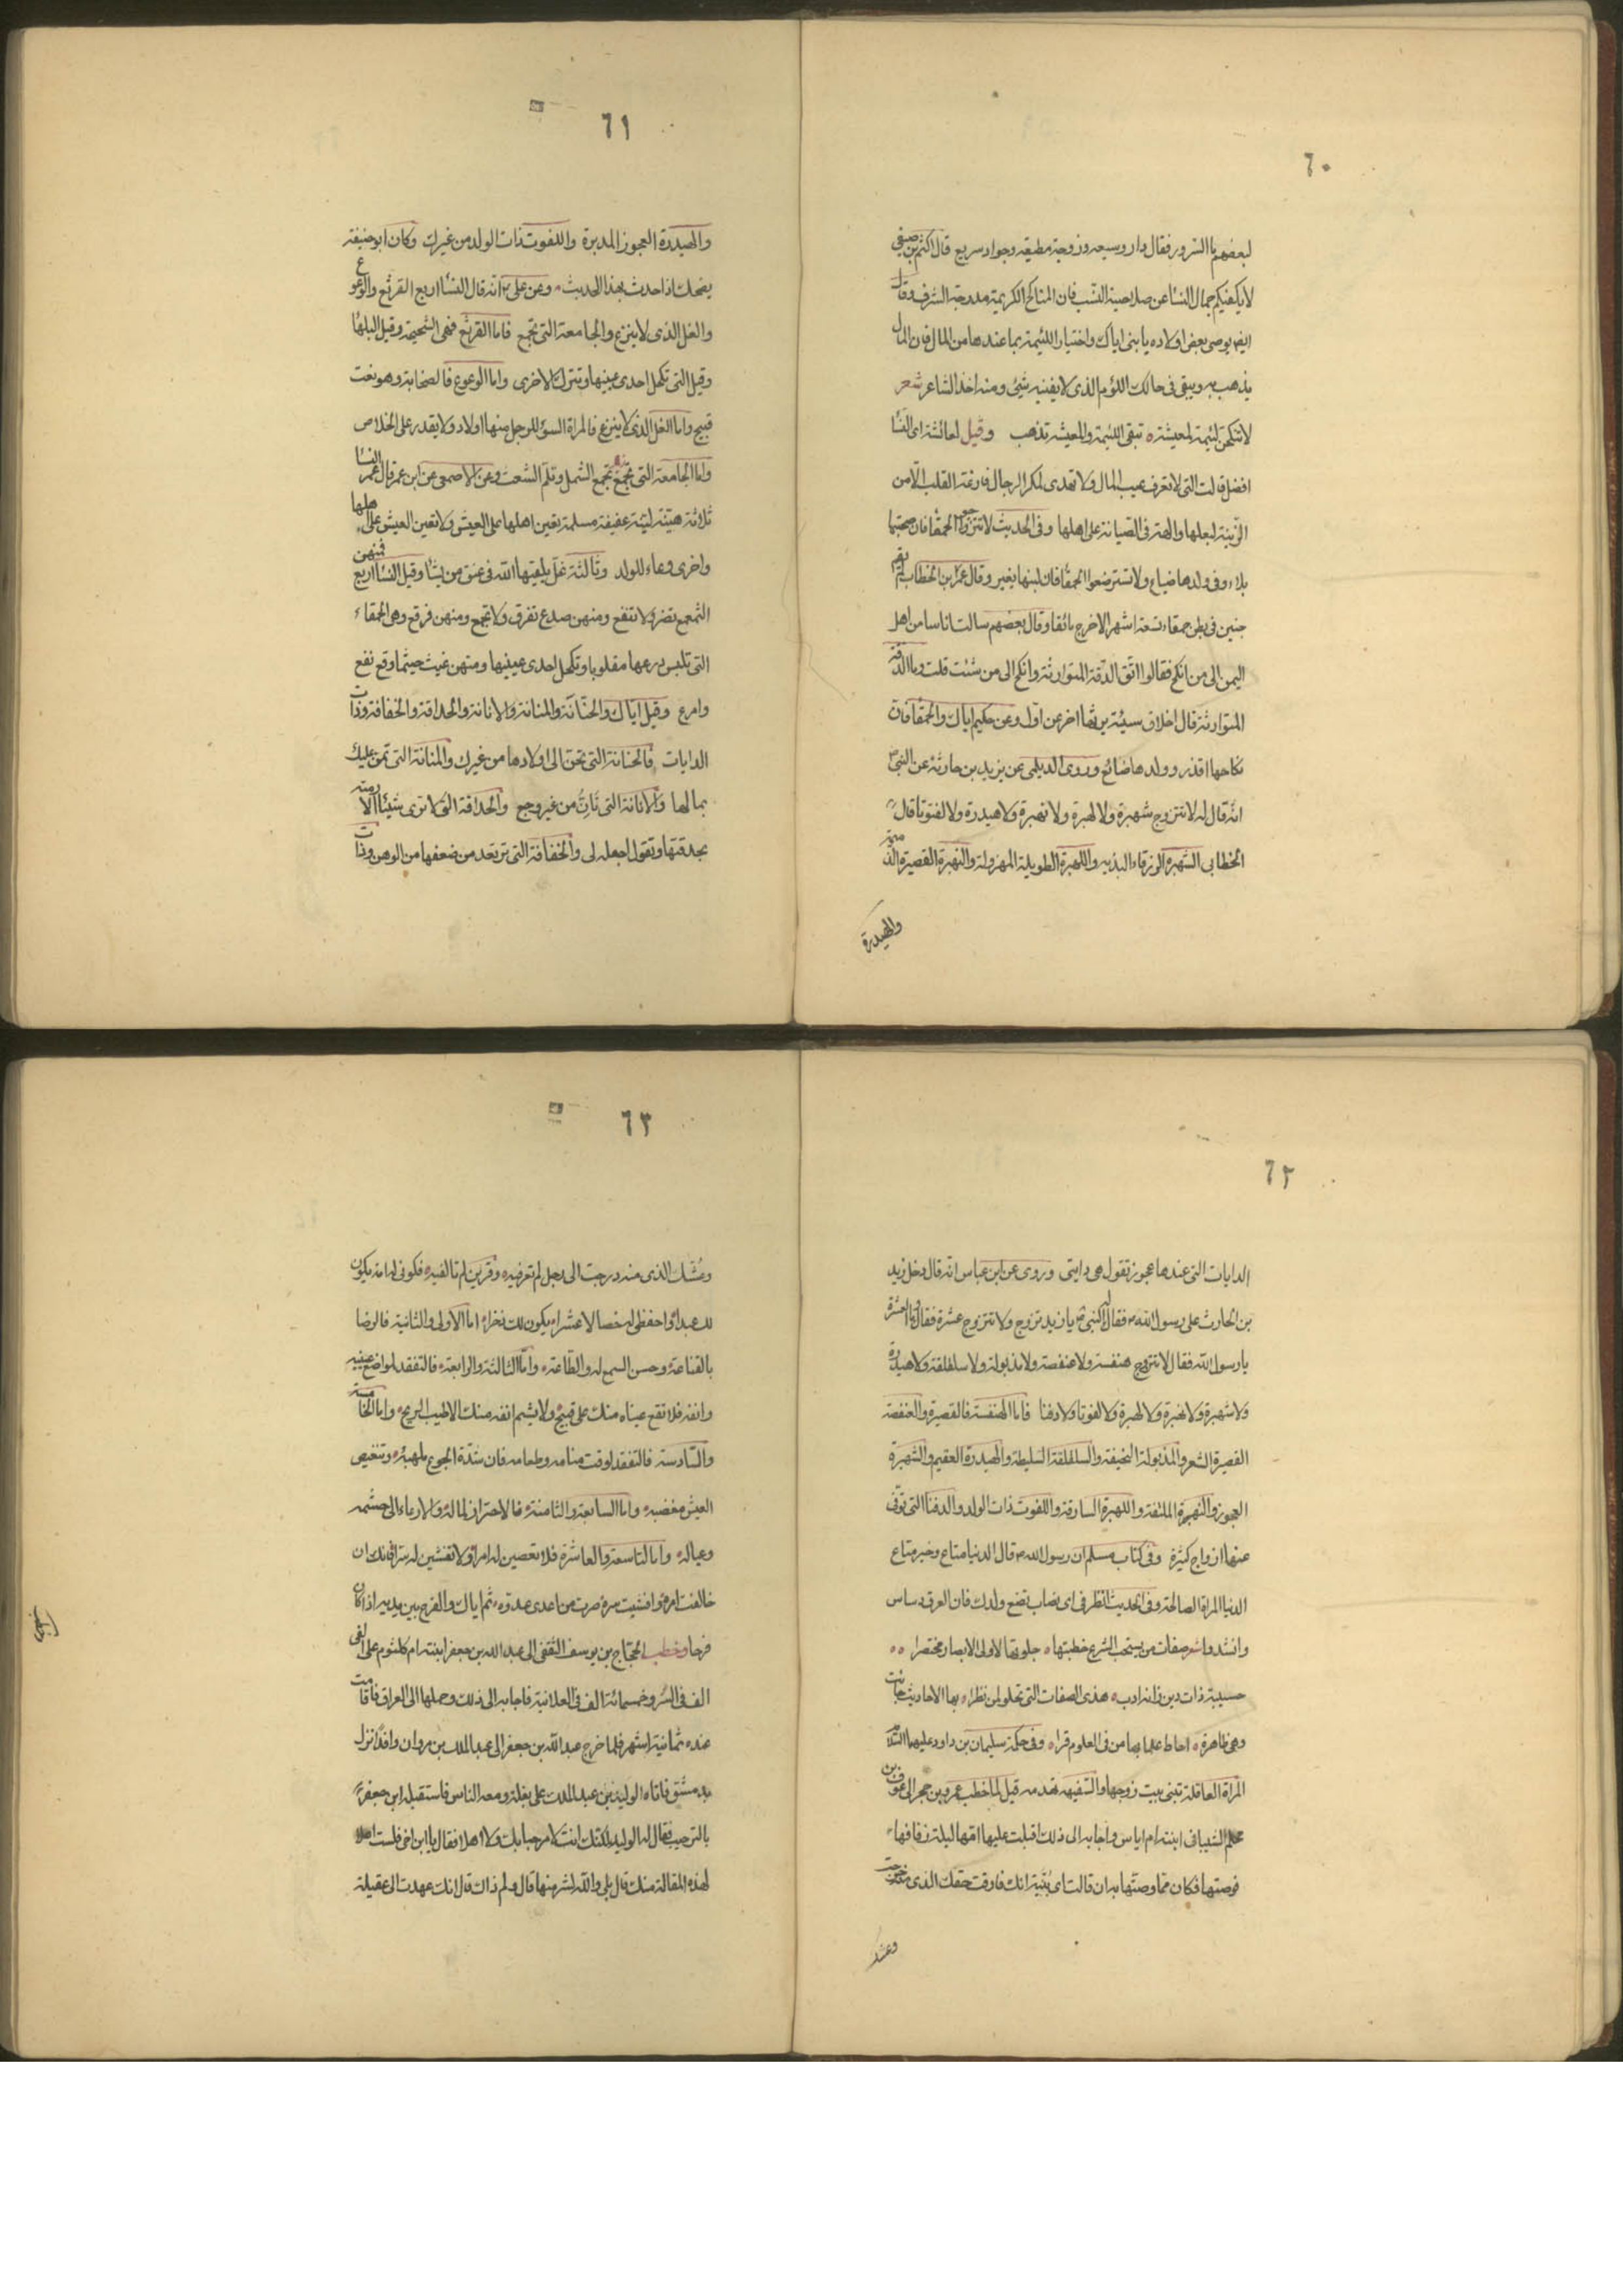 ٦٠
لبعضهم ما السرور فقال دار وسيعه وزوجة مطيعه وجواد سريع قال اكثم بن صيفى
لا يكفينكم جمال النسا عن صلاحية النسب فان المناكح الكريمة مدرجة الشرف وقال
ايض يوصى بعض اولاده يا بنى اياك واختيار اللئيمة بما عندها من المال فان المال
يذهب به ويبقى فى حالك اللؤم الذى لا يفنيه شئ ومنه اخذ الشاعر شعر
لا تنكحن لئيمة لمعيشة ٥ تبقى اللئيمة والمعيشة تذهب وقيل لعائشة اى النسا
افضل قالت التى لا تعرف عيب المال ولا تهدى لمكر الرجال فارغة القلب الا من
الزينة لبعلها والهة فى الصيانة على اهلها وفى الحديث لا تتزوجوا الحمقا فان صحبتها
بلاء وفى ولدها ضياع ولا تسترضعوا الحمقا فان لبنها يغير وقال عمر بن الخطاب لم يقم
جنين فى بطن حمقاء تسعة اشهر الا خرج مائقا وقال بعضهم سالت اناسا من اهل
اليمن الى من انكح فقالوا اتق الدقة المتوارثة وانكح الى من شئت قلت وما الدقة
المتوارثة قال اخلاق سيئة يرثها اخر عن اول وعن حكيم اياك والحمقا فان
نكاحها اقذر وولدها ضائع وروى الديلمى عن يزيد بن حارثة عن النبى
انه قال له لا تتزوج شهبرة ولا لهبرة ولا نهبرة ولا هيدرة ولا لفوتا قال
الخطابى الشهبره الزرقاء البذيه واللهبرة الطويلة المهزولة والنهبرة القصيرة الذميمة
والهيدرة
٦١
والهيدرة العجوز المدبرة واللفوت ذات الولد من غيرك وكان ابو حنيفة
يضحك اذا حدث بهذا الحديث وعن على انه قال النسا اربع القرثع والوعوع
والغل الذى لا ينزع والجامعة التى تجمع فاما القرثع فهى السحيحة وقيل البلها
وقيل التى تكحل احدى عينيها وتترك الاخرى واما الوعوع فالصخابة وهو نعت
قبيح واما الغل الذى لا ينزع فالمراة السؤ للرجل منها اولاد ولا يقدر على الخلاص
واما الجامعة التى تجمع تجمع الشمل وتلم الشعث وعن الاصمعى عن ابن عمر قال عمر النسا
ثلاثة هينة لينة عفيفة مسلمة تعين اهلها على العيش ولا تعين العيش على اهلها
واخرى وعاء للولد وثالثة غل يلقيها الله فى عنق من يشا وقيل النسا اربع فمنهن
الثمعمع تضر ولا تنفع ومنهن صدع تفرق ولا تجمع ومنهن قرقع وهى الحمقاء
التى تلبس درعها مقلوبا وتكحل احدى عينيها ومنهن غيث حيثما وقع نفع
وامرع وقيل اياك والحنانة والمنانة والانانة والحداقة والخفافة وذات
الدايات فالحنانة التى تحن الى اولادها من غيرك والمنانة التى تمن عليك
بمالها والانانة التى تان من غير وجع والحداقة التى لا ترى شيئا الا رمته
بحدقتها وتقول اجعله لى والخفافة التى ترتعد من ضعفها من الوهن وذات
٦٢
الدايات التى عندها عجوز تقول هى دايتى وروى عن ابن عباس انه قال دخل زيد
بن الحارث على رسول الله فقال له النبى يا زيد تزوج ولا تتزوج عشرة فقال وما العشرة
يا رسول الله فقال لا تتزوج هنفسة ولا عنفصة ولا مذبولة ولا سلفلقة ولا هيدرة
ولا شهبرة ولا نهبرة ولا لهبرة ولا لفوتا ولا دفنا فاما الهنفسة فالقصيرة والعنفصة
القصيرة الشعر والمذبولة النحيفة والسلفلقة السليطة والهيدرة العقيم والشهبرة
العجوز والنهبرة الملثقة واللهبرة السارقة واللفوت ذات الولد والدفنا التى توفى
عنها ازواج كثيرة وفى كتاب مسلم ان رسول الله قال الدنيا متاع وخير متاع
الدنيا المراة الصالحة وفى الحديث انظر فى اى نصاب تضع ولدك فان العرق دساس
وانشدوا شعر صفات من يستحب الشرع خطبتها ٥ جلوتها لاولى الابصار مختصرا ٥٥
حسيبة ذات دين زانه ادب ٥ هذى الصفات التى تحلو لمن نظرا ٥ بها الاحاديث جائت
وهى ظاهرة ٥ احاط علما بها من فى العلوم قرا ٥ وفى حكمة سليمان بن داود عليهما السلام
المراة العاقلة تبنى بيت زوجها والسفيهه تهدمه قيل لما خطب عمرو بن حجر الى عوف بن
محلم الشيبانى ابنته ام اياس واجابه الى ذلك اقبلت عليها امها ليلة زفافها
فوصتها فكان مما وصتها به ان قالت اى بنية انك فارقت حقك الذى منه خرجت
وعشك
٦٣
وعشك الذى منه درجت الى رجل لم تعرفيه وقرين لم تالفيه فكونى له امة يكون
لك عبدا واحفظى له خصالا عشرا يكون لك ذخرا اما الاولى والثانية فالرضا
بالقناعة وحسن السمع له والطاعة واما الثالثة والرابعة فالتفقد لمواضع عينيه
وانفه فلا تقع عيناه منك على قبيح ولا يشم انفه منك الا طيب الريح واما الخامسة
والسادسة فالتفقد لوقت منامه وطعامه فان شدة الجوع ملهبه وتنغيص
العيش مغضبه واما السابعة والثامنة فالاحتراز لماله والارعاء الى حشمه
وعياله واما التاسعة والعاشرة فلا تعصين له امرا ولا تفشين له سرا فانك ان
خالفت امره وافشيت سره صرت من اعدى عدوه ثم اياك والفرح بين يديه اذا كان
فرحا وخطب الحجاج بن يوسف الثقفى الى عبد الله بن جعفر ابنته ام كلثوم على الفى
الف فى السر وخمسمائة الف فى العلانية فاجابه الى ذلك وحملها الى العراق فاقامت
عنده ثمانية اشهر فلما خرج عبد الله بن جعفر الى عبد الملك بن مروان وافدا نزل
بدمشق فاتاه الوليد بن عبد الملك على بغلة ومعه الناس فاستقبله ابن جعفر
بالترحيب فقال له الوليد لكنك انت لا مرحبا بك ولا اهلا فقال يا ابن اخى فلست اهلا
لهذه المقالة منك قال بلى والله لشر منها قال ولم ذاك قال انك عهدت الى عقيلة